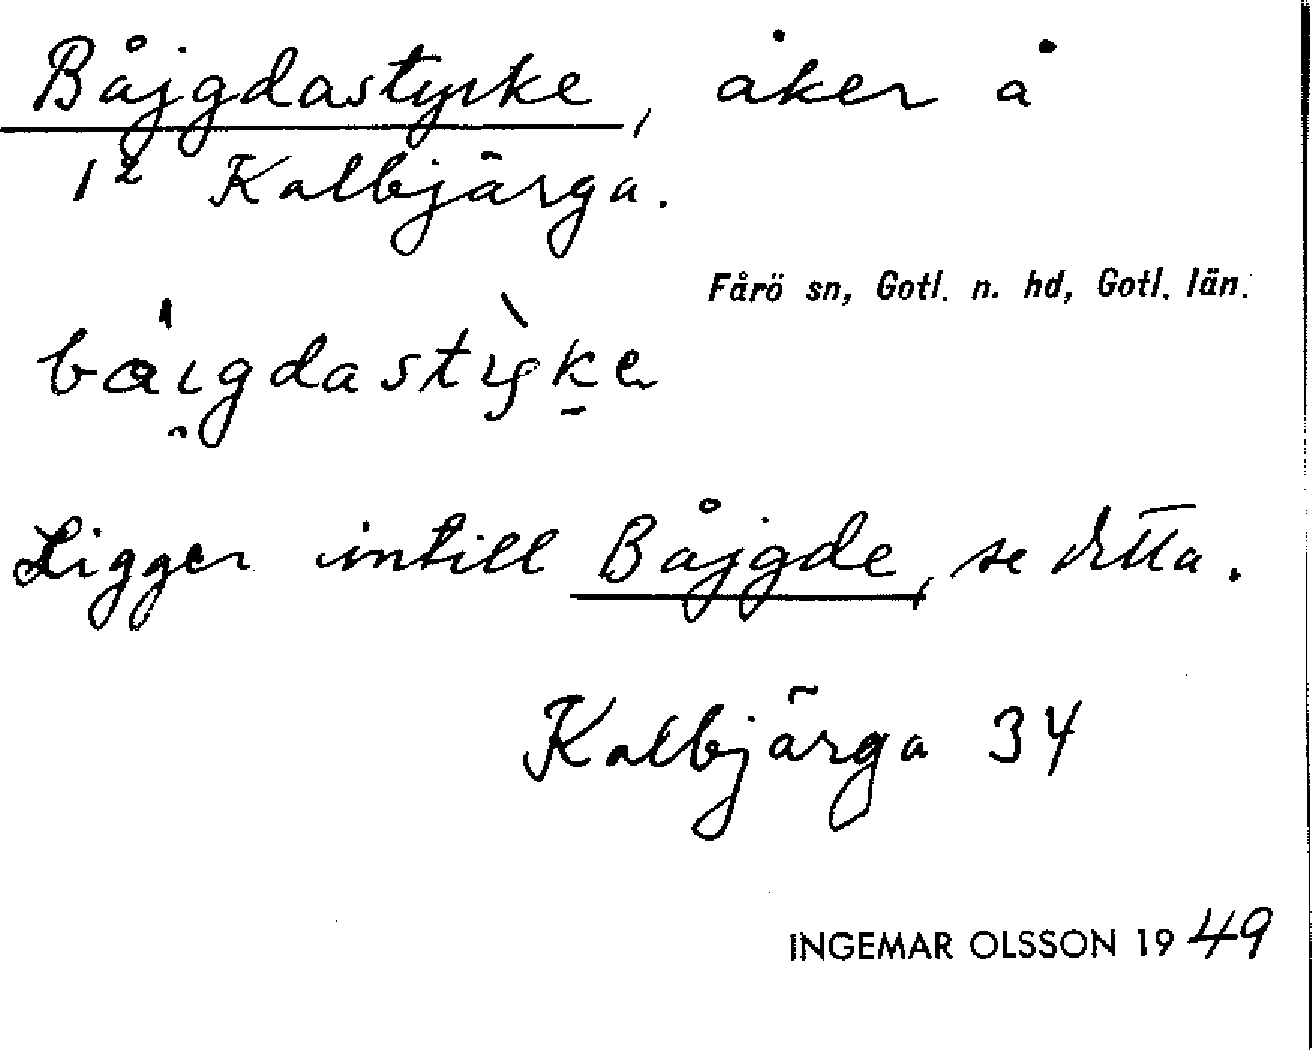 Båjgdastycke, åker å
1² Kalbjärga.
Fårö sn, Gotl. n. hd, Gotl. län.
Ligger intill Båjgde, se detta.
Kalbjärga 34
INGEMAR OLSSON 1949